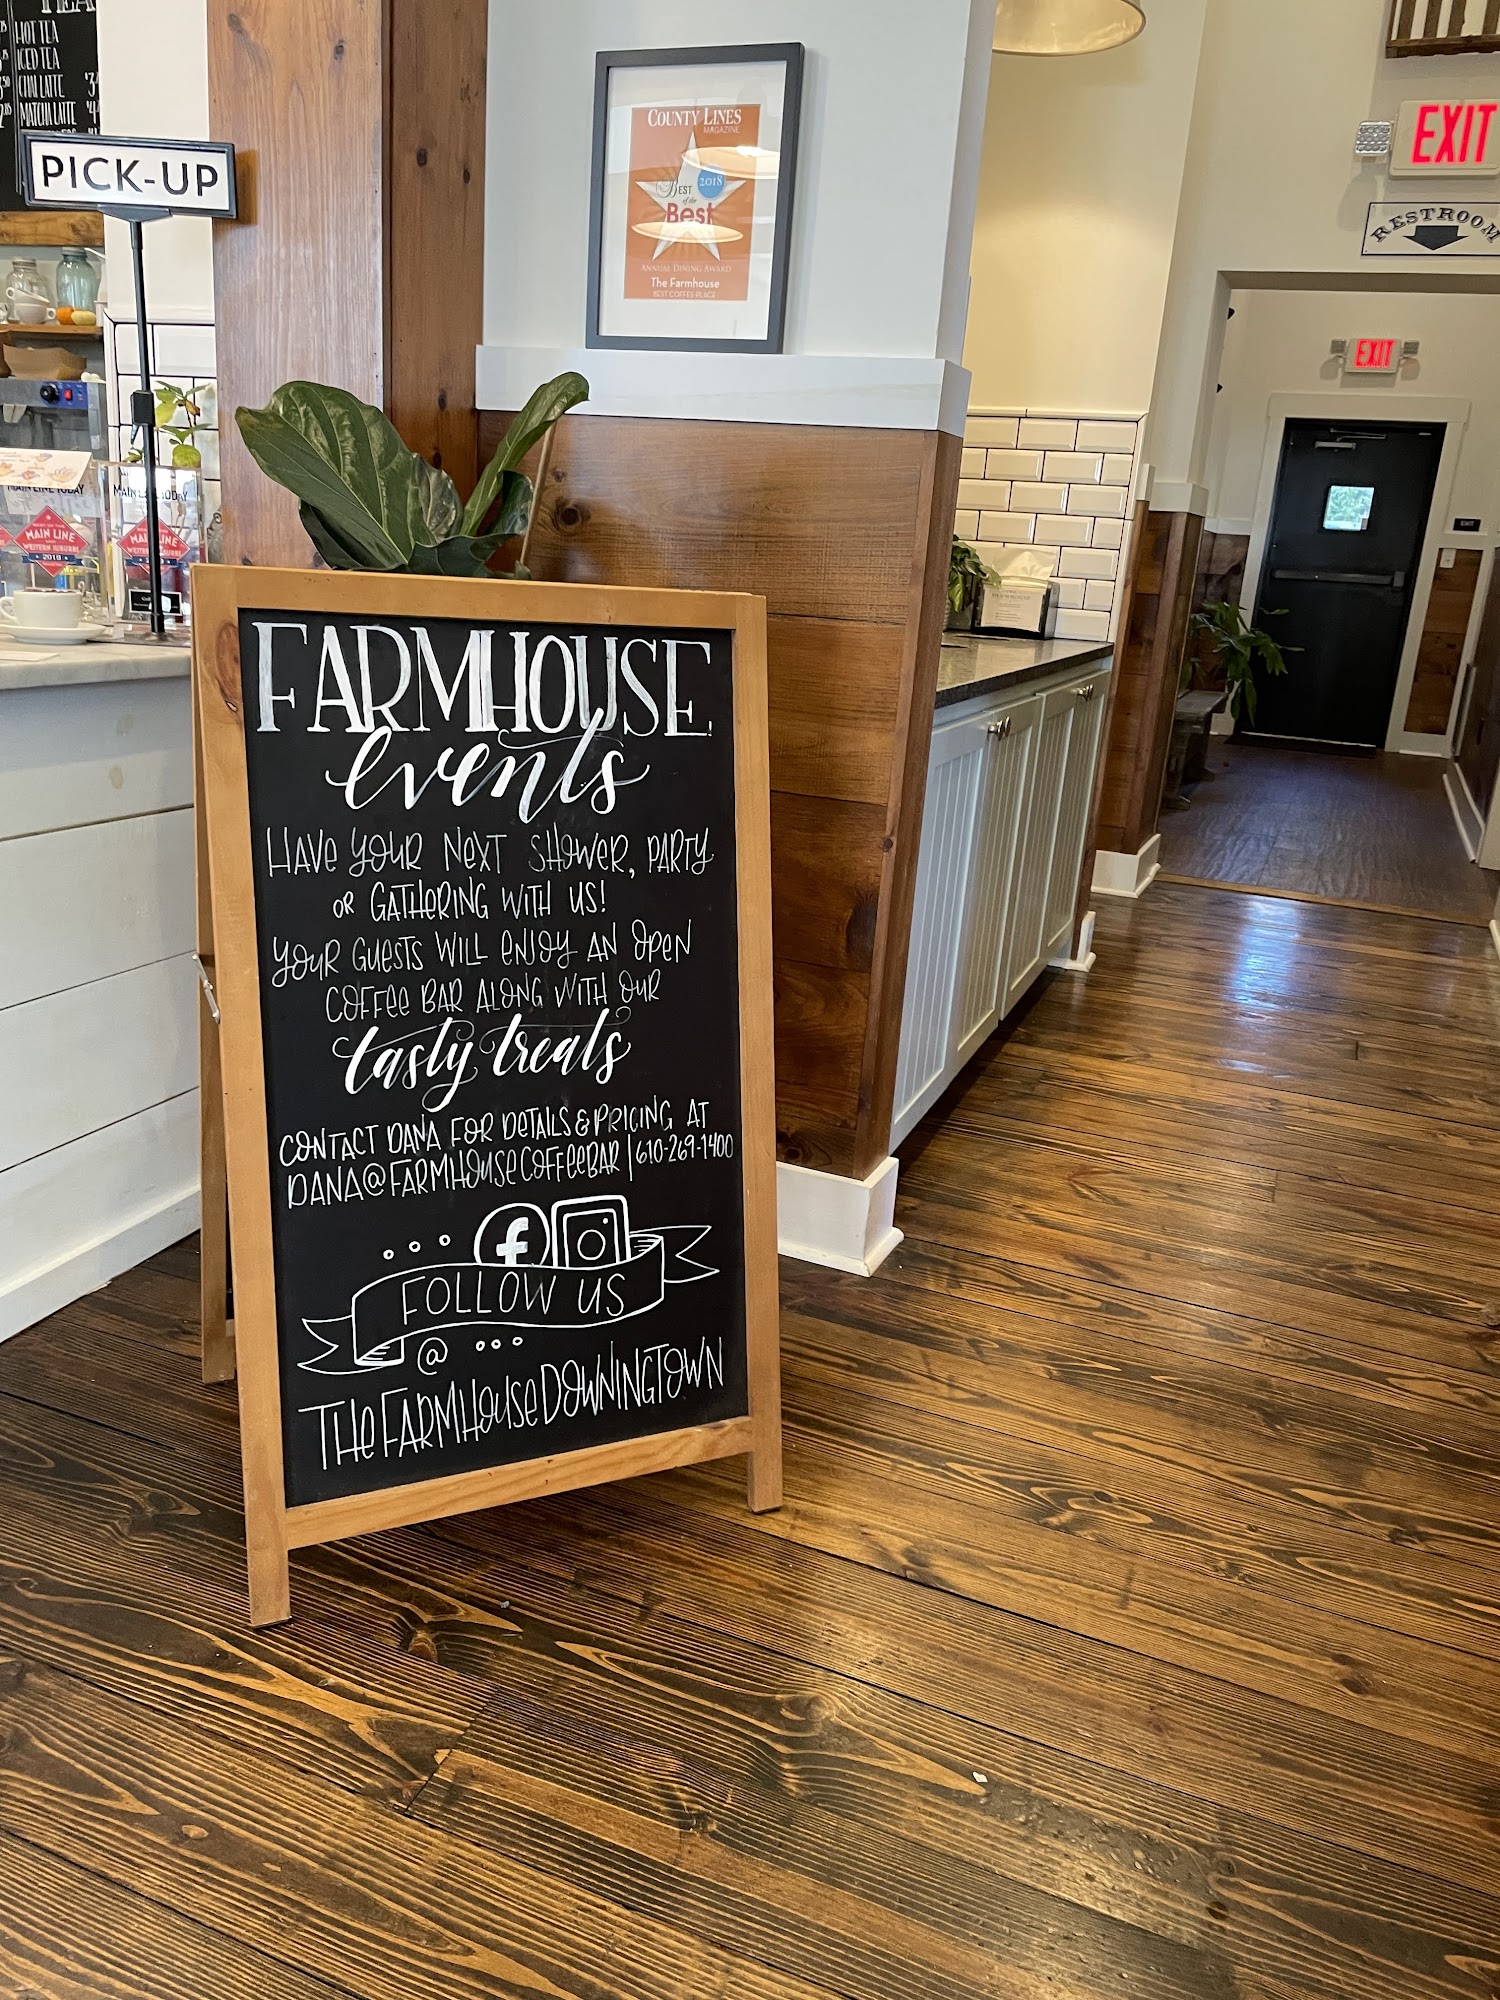 HOT TEA
ICED TEA
CHAI LATTE
MATCHA LATTE
PICK-UP
COUNTY LINES
MAGAZINE
2018
BEST
of the
Best
ANNUAL DINING AWARD
The Farmhouse
BEST COFFEE PLACE
EXIT
RESTROOM
EXIT
MAIN LINE TODAY
MAIN LINE
WESTERN SUBURBS
2019
MAIN LINE TODAY
MAIN LINE
FARMHOUSE
events
HAVE YOUR NEXT SHOWER, PARTY
OR GATHERING WITH US!
YOUR GUESTS WILL ENJOY AN OPEN
COFFEE BAR ALONG WITH OUR
tasty treats
CONTACT DANA FOR DETAILS & PRICING AT
DANA@FARMHOUSECOFFEEBAR | 610-269-1400
f
FOLLOW US
@
THEFARMHOUSEDOWNINGTOWN